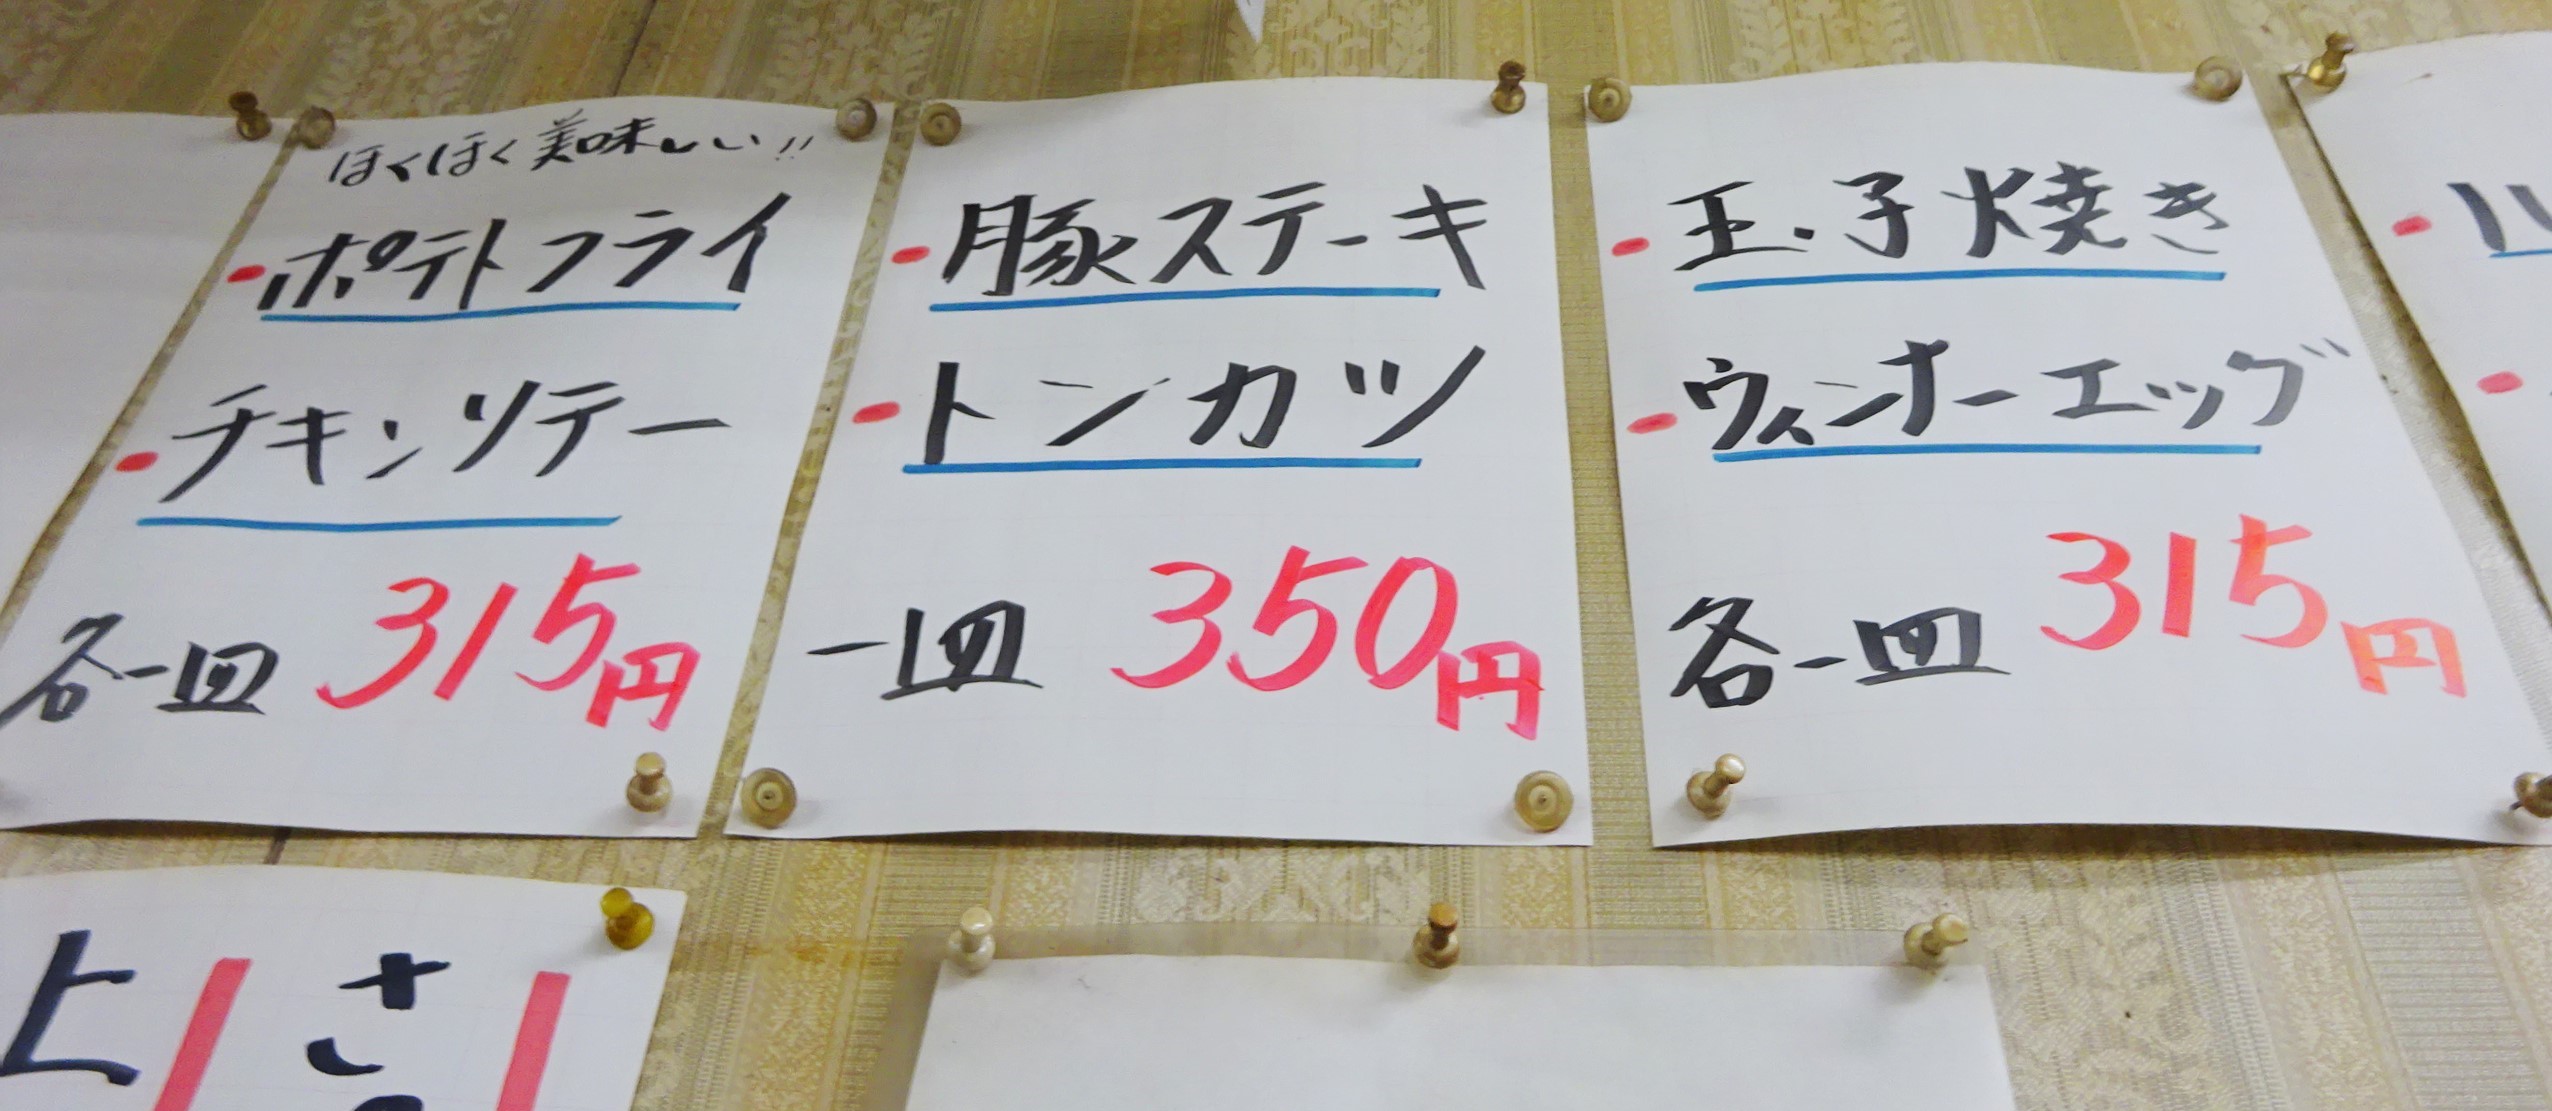 ほくほく美味しい!!
・ポテトフライ
・チキンソテー
各一皿 315円
・豚ステーキ
・トンカツ
一皿 350円
・玉子焼き
・ウィンナーエッグ
各一皿 315円
上
さ